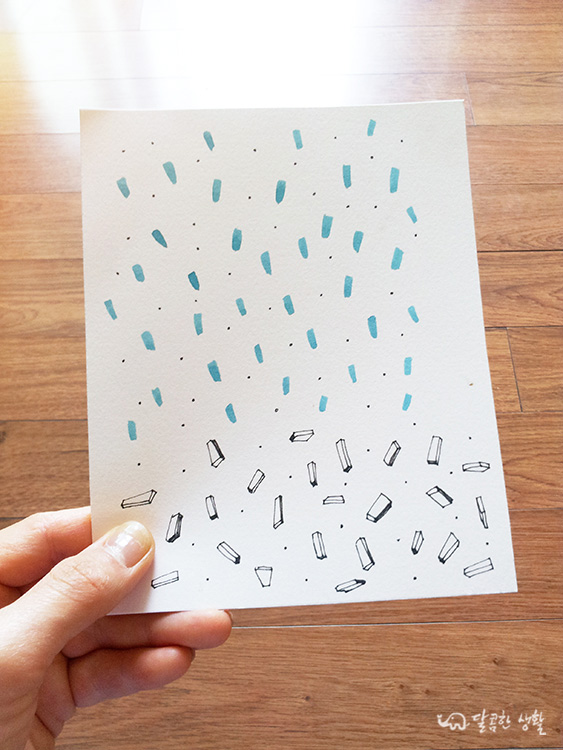 달콤한 생활